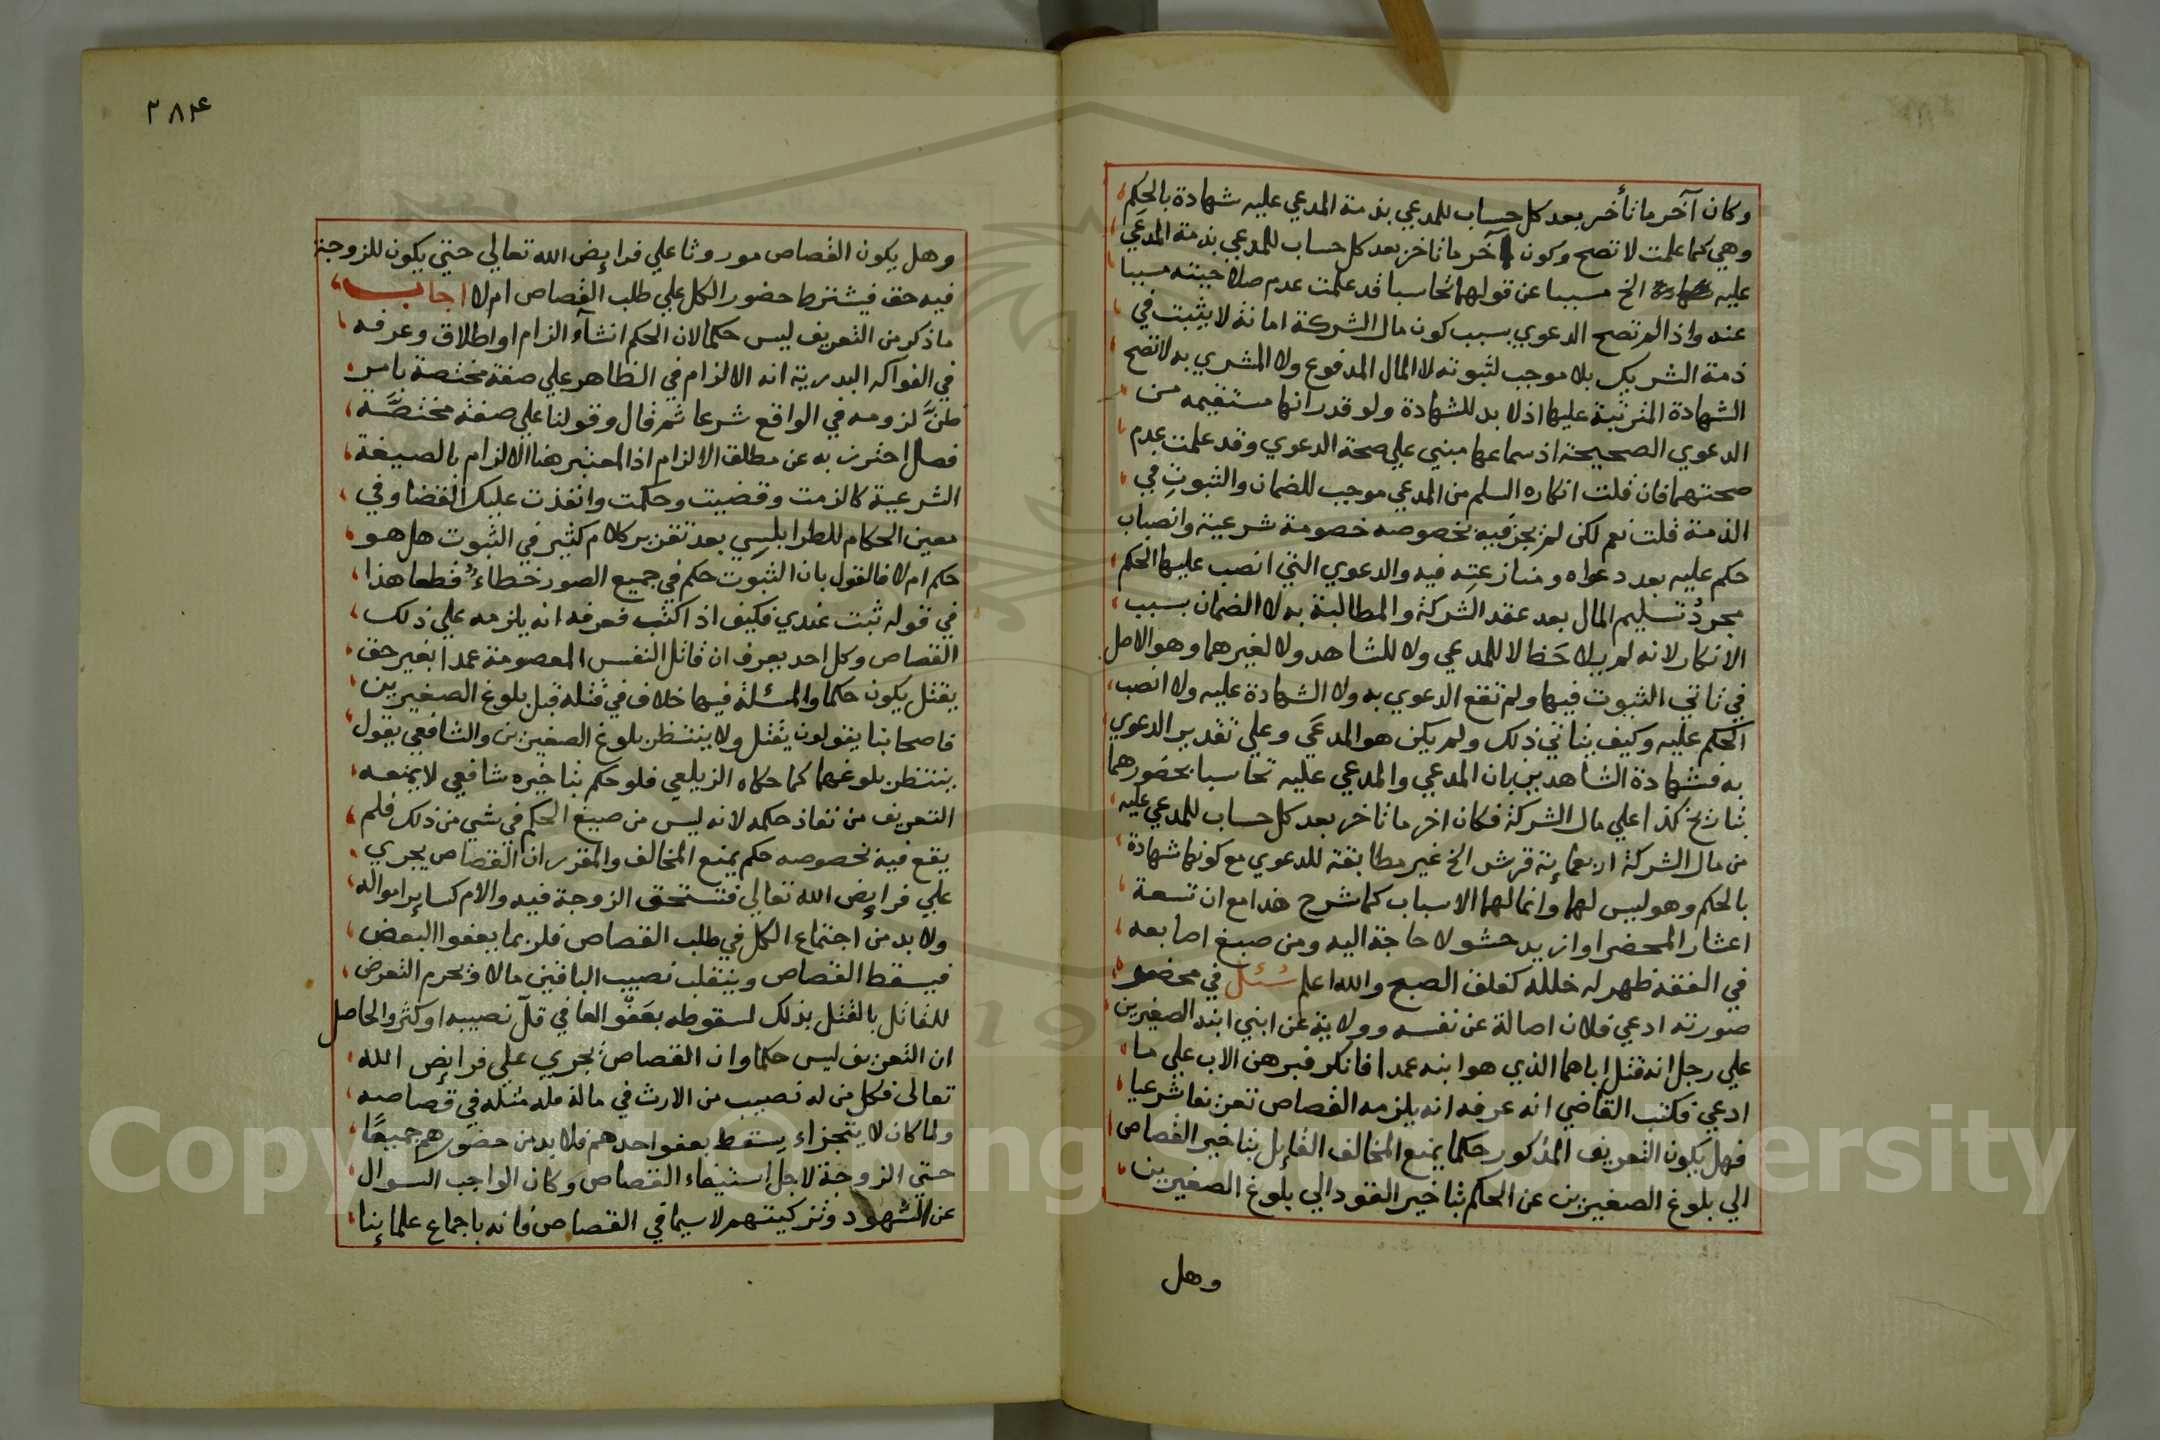 وكان آخر ما تأخر بعد كل حساب للمدعي بذمة المدعي عليه شهادة بالحكم
وهي كما علمت لا تصح وكون آخر ما تاخر بعد كل حساب للمدعي بذمة المدعي
عليه الخ مسببا عن قولهما تحاسبا قد علمت عدم صلاحيته مسببا
عنه واذا لم تصح الدعوي بسبب كون مال الشركة امانة لا يثبت في
ذمة الشريك بلا موجب لثبوته لا المال المدفوع ولا المشري به لا تصح
الشهادة المترتبة عليها اذ لا بد للشهادة ولو قدر انها مستقيمه من
الدعوي الصحيحة اذ سماعها مبني علي صحة الدعوي وقد علمت عدم
صحتهما فان قلت انكاره السلم من المدعي موجب للضمان والثبوت في
الذمة قلت نعم لكن لم يجز فيه بخصوصه خصومة شرعية وانصباب
حكم عليه بعد دعواه ومنازعته فيه والدعوي التي انصب عليها الحكم
مجرد تسليم المال بعد عقد الشركة والمطالبة به لا الضمان بسبب
الانكار لانه لم يلاحظ لا للمدعي ولا للشاهد ولا لغيرهما وهو الاصل
في تاتي الثبوت فيها ولم تقع الدعوي به ولا الشهادة عليه ولا انصب
الحكم عليه وكيف يتاتي ذلك ولم يكن هو المدعي وعلي تقدير الدعوي
به فشهادة الشاهدين بان المدعي والمدعي عليه تحاسبا بحضورهما
بتاريخ كذا علي مال الشركة فكان اخر ما تاخر بعد كل حساب للمدعي عليه
من مال الشركة اربعمائة قرش الخ غير مطابقة للدعوي مع كونها شهادة
بالحكم وهو ليس لهما وانما لهما الاسباب كما شرح هذا مع ان تسعة
اعشار المحضر او ازيد حشو لا حاجة اليه ومن صبغ اصابعه
في الفقه ظهر له خلله كفلق الصبح والله اعلم سئل في محضر
صورته ادعي فلان اصالة عن نفسه وولاية عن ابني ابنه الصغيرين
علي رجل انه قتل اباهما الذي هو ابنه عمدا فانكر فبرهن الاب علي ما
ادعي فكتب القاضي انه عرفه انه يلزمه القصاص تعريفا شرعيا
فهل يكون التعريف المذكور حكما يمنع المخالف القايل بتاخير القصاص
الي بلوغ الصغيرين عن الحكم بتاخير القود الي بلوغ الصغيرين
وهل
٣٨٤
وهل يكون القصاص موروثا علي فرايض الله تعالي حتي يكون للزوجة
فيه حق فيشترط حضور الكل علي طلب القصاص ام لا اجاب
ما ذكر من التعريف ليس حكما لان الحكم انشاء الزام او اطلاق وعرفه
في الفواكه البدرية انه الالزام في الظاهر علي صفة مختصة بامر
ظن لزومه في الواقع شرعا ثم قال وقولنا علي صفة مختصة
فصل احترز به عن مطلق الالزام اذ المعتبر هنا الالزام بالصيغة
الشرعية كالزمت وقضيت وحكمت وانفذت عليك القضا وفي
معين الحكام للطرابلسي بعد تقرير كلام كثير في الثبوت هل هو
حكم ام لا فالقول بان الثبوت حكم في جميع الصور خطاء قطعا هذا
في قوله ثبت عندي فكيف اذا كتب فعرفه انه يلزمه علي ذلك
القصاص وكل احد يعرف ان قاتل النفس المعصومة عمدا بغير حق
يقتل يكون حكما والمسئلة فيها خلاف في قتله قبل بلوغ الصغيرين
فاصحابنا يقولون يقتل ولا ينتظر بلوغ الصغيرين والشافعي يقول
ينتظر بلوغهما كما حكاه الزيلعي فلو حكم بتاخيره شافعي لا يمنعه
التعريف من نفاذ حكمه لانه ليس من صيغ الحكم في شي من ذلك فلم
يقع فيه بخصوصه حكم يمنع المخالف والمقرر ان القصاص يجري
علي فرايض الله تعالي فتستحق الزوجة فيه والام كساير امواله
ولا بد من اجتماع الكل في طلب القصاص فلربما يعفوا البعض
فيسقط القصاص وينقلب نصيب الباقين مالا ويحرم التعرض
للقاتل بالقتل بذلك لسقوطه بعفو العافي قل نصيبه او كثر والحاصل
ان التعريف ليس حكما وان القصاص يجري علي فرايض الله
تعالى فكل من له نصيب من الارث في ماله فله مثله في قصاصه
ولما كان لا يتجزاء يسقط بعفو احدهم فلا بد من حضورهم جميعا
حتي الزوجة لاجل استيفاء القصاص وكان الواجب السوال
عن الشهود وتزكيتهم لا سيما في القصاص فانه باجماع علماينا
Copyright © King Saud University